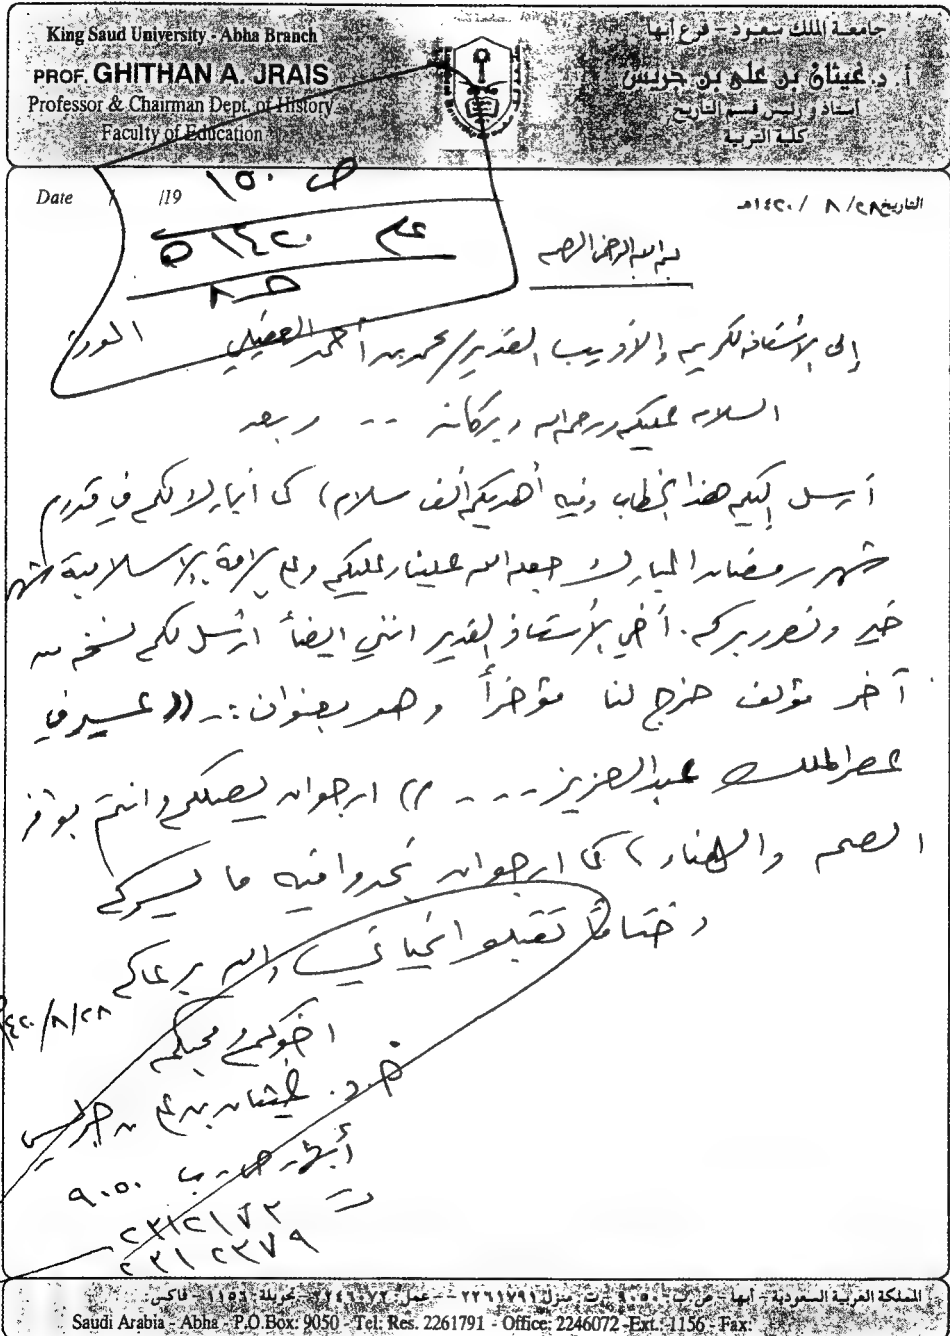 King Saud University - Abha Branch
PROF. GHITHAN A. JRAIS
Professor & Chairman Dept. of History
Faculty of Education
جامعة الملك سعود - فرع أبها
أ. د. غيثان بن علي بن جريس
أستاذ ورئيس قسم التاريخ
كلية التربية
Date / /19
التاريخ ٢٨/ ٨ / ١٤٢٠هـ
ص ١٥٠
عام ١٤٢٠ه
بسم الله الرحمن الرحيم
إلى الأستاذ الكريم والأديب القدير/ محمد بن أحمد العقيلي الموقر
السلام عليكم ورحمة الله وبركاته -- وبعد
أرسل إليكم هذا الخطاب وفيه أهديكم ألف سلام، كما أبارك لكم في قدوم
شهر رمضان المبارك جعله الله علينا وعليكم وعلى الأمة الإسلامية شهر
خير ونصر وبركه. أخي الأستاذ القدير انني ايضاً ارسل لكم نسخه من
آخر مؤلف خرج لنا مؤخراً وهو بعنوان :- ((عسير في
عصر الملك عبدالعزيز ---)) ارجو ان يصلكم وانتم بوافر
الصحه والهناء، كما ارجو ان تجدوا فيه ما يسركم
وختاماً تقبلوا تحياتي، والله يرعاكم
١٤٢٠/٨/٢٨
اخوكم ومحبكم
أ.د. غيثان بن علي بن جريس
أبها - ص. ب ٩٠٥٠
ت ٢٣١٢١٧٢
٢٣١٢٣٧٩
المملكة العربية السعودية - أبها - ص ب ٩٠٥٠ - ت منزل ٢٢٦١٧٩١ - عمل ٢٢٤٦٠٧٢ - تحويلة ١١٥٦ - فاكس
Saudi Arabia - Abha - P.O Box: 9050 - Tel: Res. 2261791 - Office: 2246072 -Ext.: 1156 - Fax: